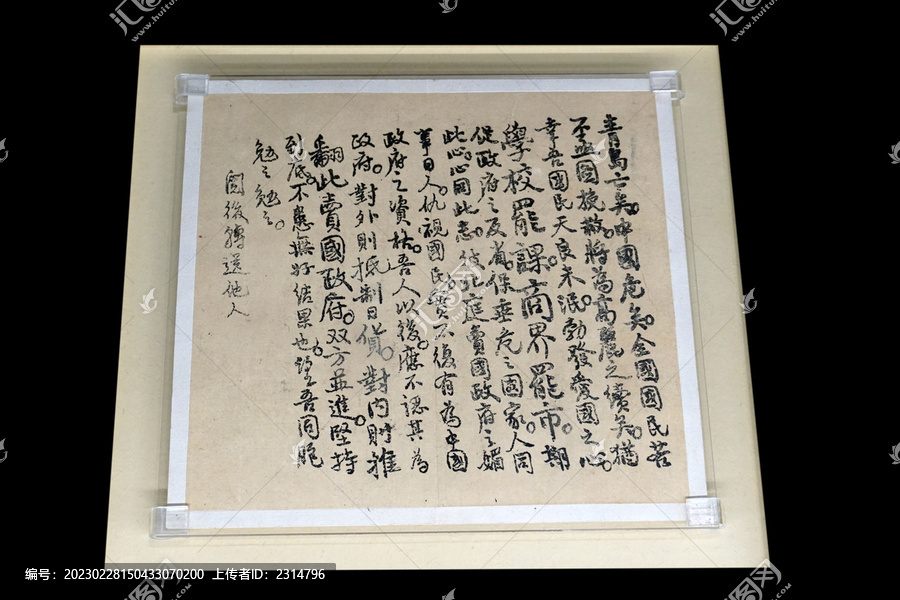 青島亡矣。中國危矣。全國國民若
不亟圖挽救。將為高麗之續矣。猶
幸吾國民天良未泯。勃發愛國之心。
學校罷課。商界罷市。期
促政府之反省。保垂危之國家。人同
此心。心同此志。彼北庭賣國政府之媚
事日人。仇視國民。實不復有為中國
政府之資格。吾人以後應不認其為
政府。對外則抵制日貨。對內則推
翻此賣國政府。双方並進。堅持
到底。不患無好結果也。望吾同胞
勉之勉之。
閱後轉送他人
编号：20230228150433070200 上传者ID：2314796